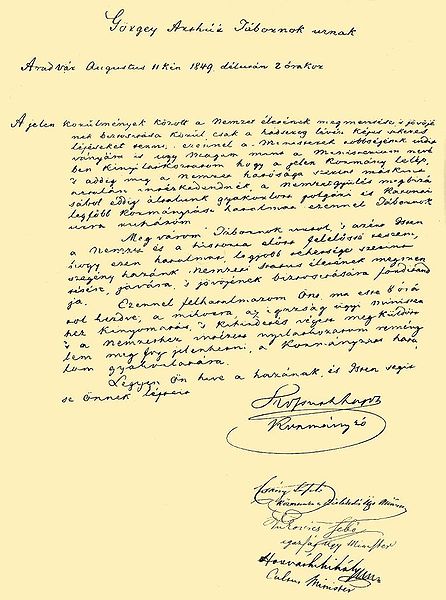 Görgey Arthúr Tábornok urnak
Aradvár Augustus 11kén 1849 délután 2 órakor
A jelen körülmények között a Nemzet életének megmentése s jövőjé
nek biztosítása körül csak a hadsereg lévén képes sikeres
lépéseket tenni, ezennel a Ministerek többségének
ványára is ugy Magam mint a Ministerium nevé
ben kinyilatkoztatom hogy a jelen Kormány lelép,
s addig mig a Nemzet hatósága szerint máskint
netalán a nemzetgyülés megbizá
sából eddig általunk gyakorlott polgári is katonai
legfőbb kormányzási hatalmat ezennel Tábornok
urra ruházom
Meg várom Tábornok urtol, s azért Isten
a Nemzet és a historia előtt felelőssé teszem,
hogy ezen hatalmat, legjobb tehetsége szerint
szegény hazánk nemzeti status életének megmen
tésére, javára, s jövőjének biztosítására forditand
ja.
Ezennel felhatalmazom Önt, ma este 8 órá
tol kezdve, a mikorra, az igazság ügyi Miniszter
hez kinyomatás, s kihirdetés végett megküldött
s a Nemzethez intézett nyilatkozatom remény
lem meg fog jelenhetni, a Kormányzati hata
lom gyakorlatára.
Legyen Ön hive a hazának, és Isten segit
se Önnek lépteit
Kossuth Lajos
Kormányzó
Csány László
Közmunka s közlekedési ügy Minister
Vukovics Sebő
igazságügy Minister
Horváth Mihály
Cultus Minister